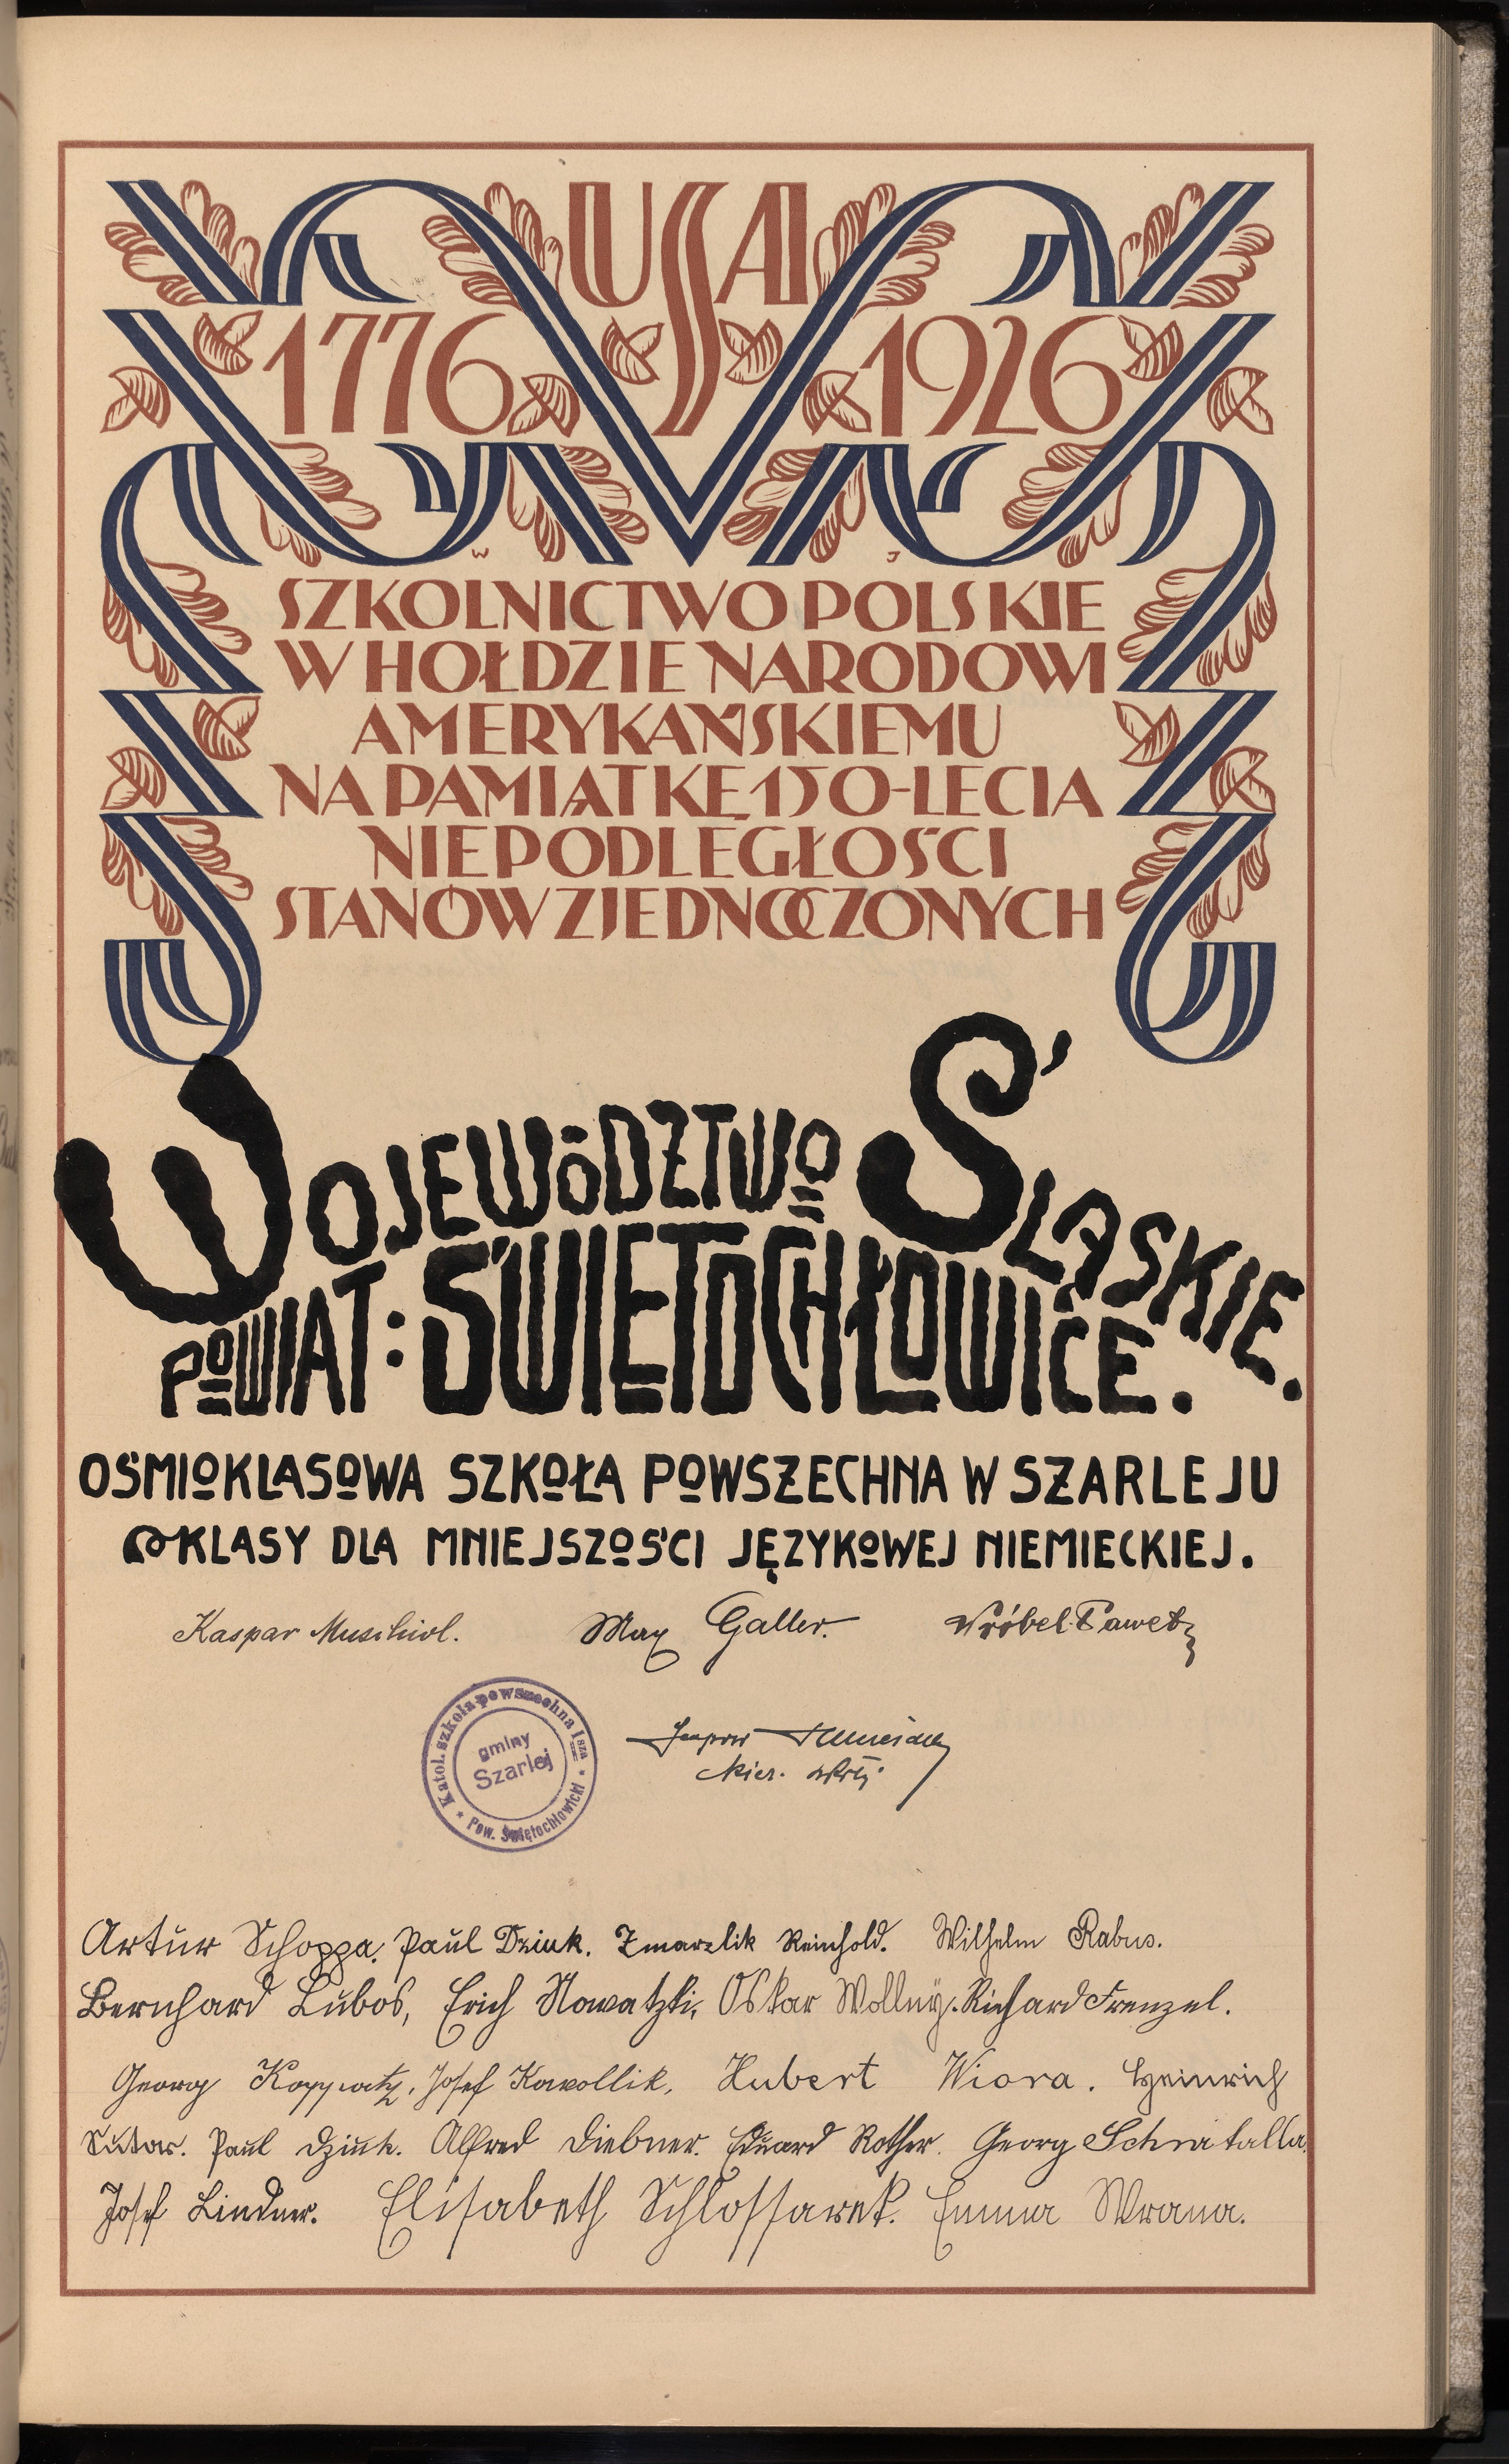 USA
1776 1926
W J
SZKOLNICTWO POLSKIE
W HOŁDZIE NARODOWI
AMERYKAŃSKIEMU
NA PAMIĄTKĘ 150-LECIA
NIEPODLEGŁOŚCI
STANÓW ZJEDNOCZONYCH
WOJEWÓDZTWO ŚLĄSKIE.
POWIAT: ŚWIĘTOCHŁOWICE.
OŚMIOKLASOWA SZKOŁA POWSZECHNA W SZARLEJU
KLASY DLA MNIEJSZOŚCI JĘZYKOWEJ NIEMIECKIEJ.
Kaspar Muschiol. Max Galler. Wróbel Paweł
Katol. szkoła powszechna Isza
gminy
Szarlej
* Pow. Świętochłowicki *
kier. szkoły
Artŭr Schoppa, Paŭl Dziuk. Zmarzlik Reinhold. Wilhelm Rabus.
Bernhard Lŭbos, Erich Nowatzki, Oskar Wollny. Richard Frenzel.
Georg Koppwatz, Josef Kowollik, Hubert Wiora. Heinrich
Paŭl Dziŭk. Alfred Diebner. Edŭard Rother. Georg Schwatalla,
Josef Lindner. Elisabeth Schlossarek. Emma Wrana.